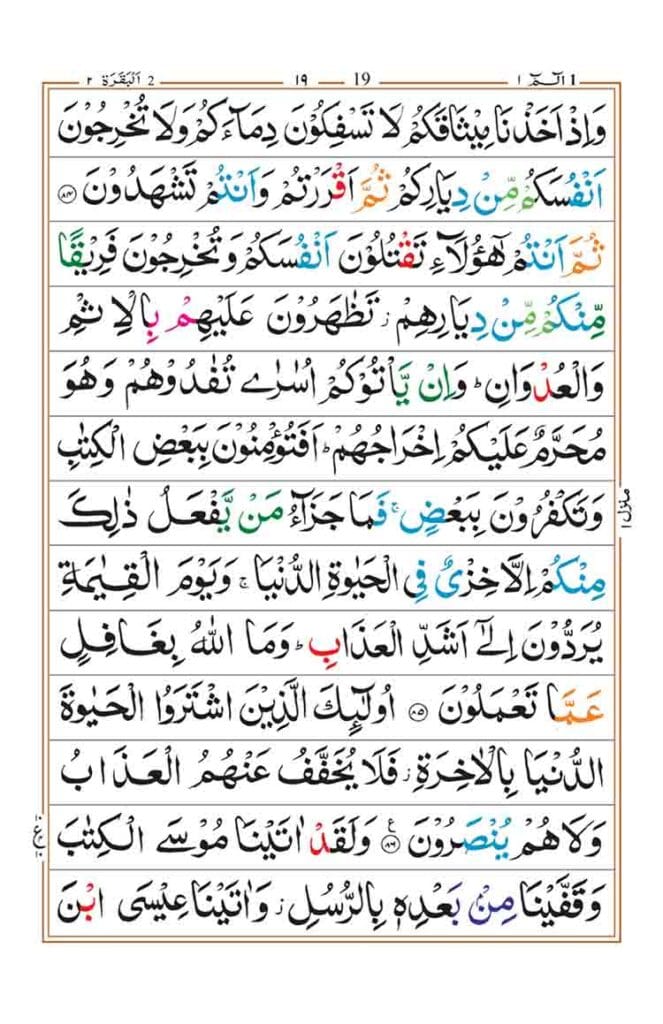 1 الٓمّٓ ١ 19 ١٩ 2 اَلْبَقَرَة ٢
وَاِذْ اَخَذْنَا مِيْثَاقَكُمْ لَا تَسْفِكُوْنَ دِمَآءَكُمْ وَلَا تُخْرِجُوْنَ
اَنْفُسَكُمْ مِّنْ دِيَارِكُمْ ثُمَّ اَقْرَرْتُمْ وَاَنْتُمْ تَشْهَدُوْنَ ﴿۸۴﴾
ثُمَّ اَنْتُمْ هٰٓؤُلَآءِ تَقْتُلُوْنَ اَنْفُسَكُمْ وَتُخْرِجُوْنَ فَرِيْقًا
مِّنْكُمْ مِّنْ دِيَارِهِمْ ز تَظٰهَرُوْنَ عَلَيْهِمْ بِالْاِثْمِ
وَالْعُدْوَانِ ؕ وَاِنْ يَّاْتُوْكُمْ اُسٰرٰى تُفٰدُوْهُمْ وَهُوَ
مُحَرَّمٌ عَلَيْكُمْ اِخْرَاجُهُمْ ؕ اَفَتُؤْمِنُوْنَ بِبَعْضِ الْكِتٰبِ
وَتَكْفُرُوْنَ بِبَعْضٍ ۚ فَمَا جَزَآءُ مَنْ يَّفْعَلُ ذٰلِكَ
مِنْكُمْ اِلَّا خِزْىٌ فِى الْحَيٰوةِ الدُّنْيَا ۚ وَيَوْمَ الْقِيٰمَةِ
يُرَدُّوْنَ اِلٰٓى اَشَدِّ الْعَذَابِ ؕ وَمَا اللّٰهُ بِغَافِلٍ
عَمَّا تَعْمَلُوْنَ ﴿۸۵﴾ اُولٰٓئِكَ الَّذِيْنَ اشْتَرَوُا الْحَيٰوةَ
الدُّنْيَا بِالْاٰخِرَةِ ز فَلَا يُخَفَّفُ عَنْهُمُ الْعَذَابُ
وَلَا هُمْ يُنْصَرُوْنَ ﴿۸۶﴾ ع وَلَقَدْ اٰتَيْنَا مُوْسَى الْكِتٰبَ
وَقَفَّيْنَا مِنْۢ بَعْدِهٖ بِالرُّسُلِ ز وَاٰتَيْنَا عِيْسَى ابْنَ
منزل ١